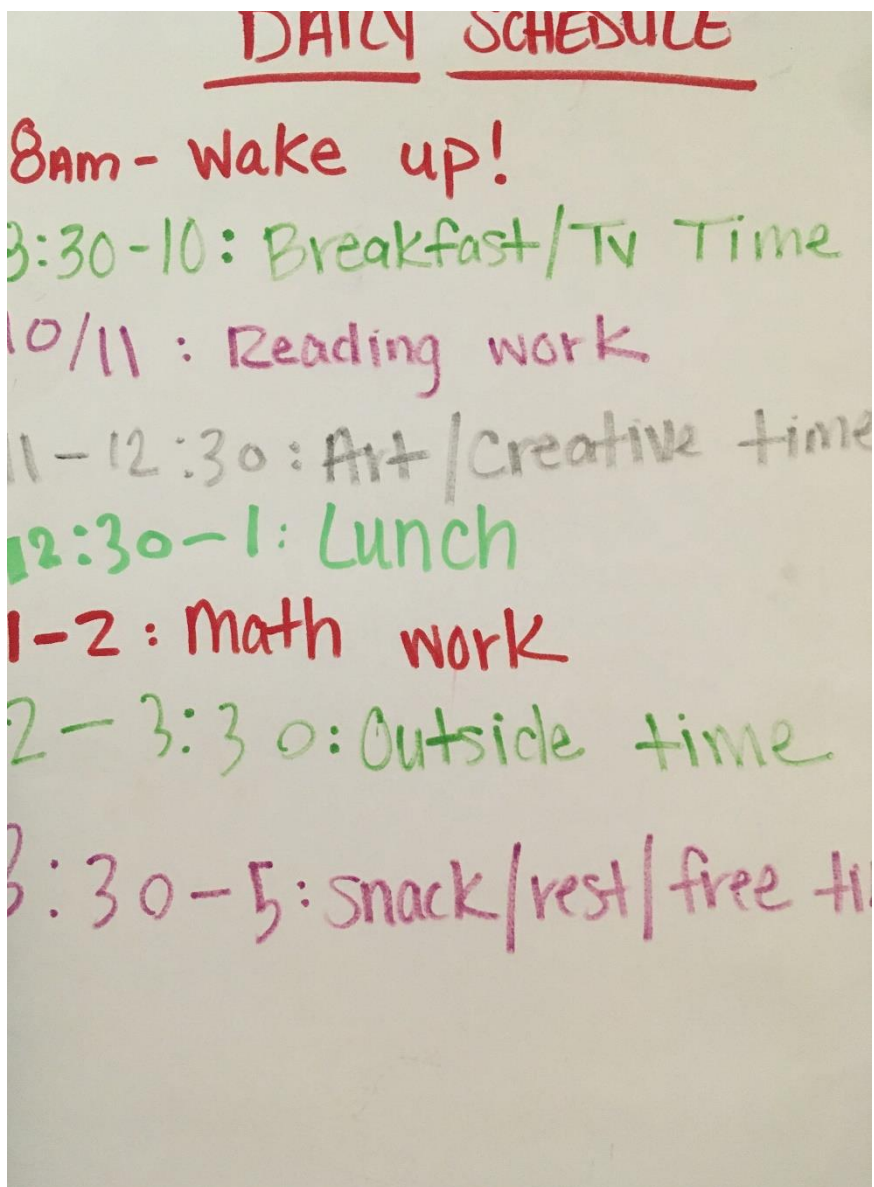 DAILY SCHEDULE
8AM - Wake up!
8:30-10: Breakfast/TV Time
10/11 : Reading work
11-12:30: Art/Creative time
12:30-1: Lunch
1-2: Math work
2-3:30: Outside time
3:30-5: snack/rest/free